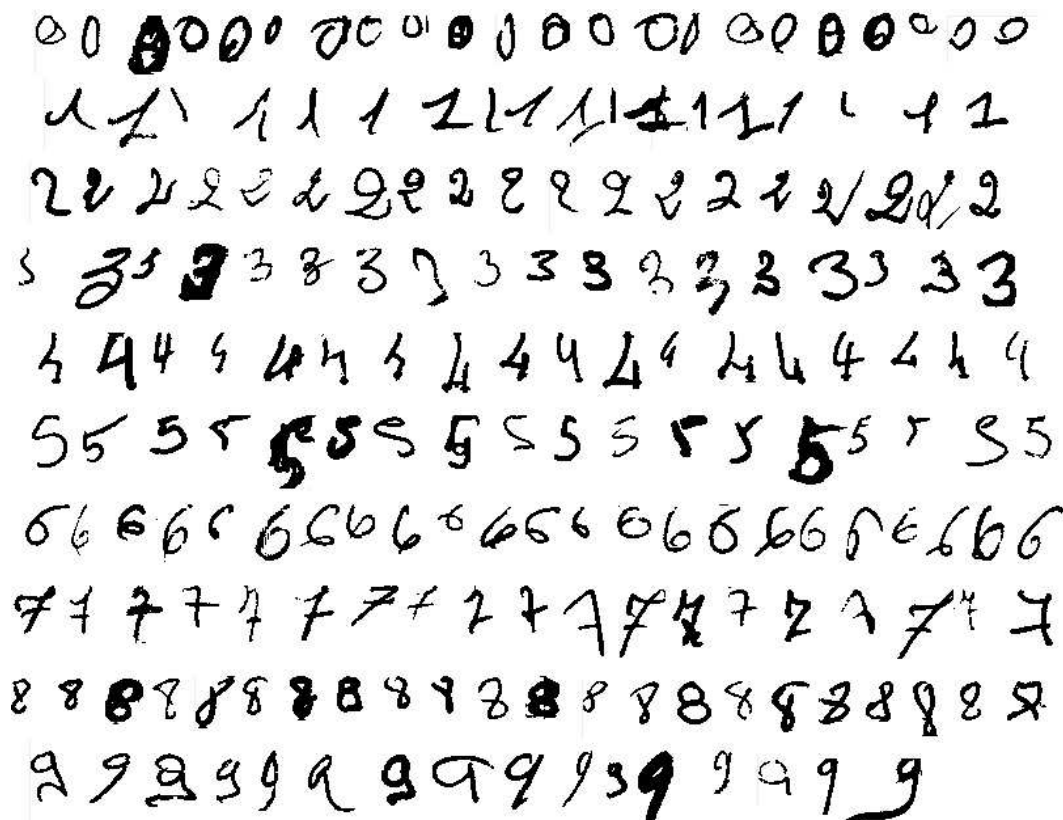 0 0 0 0 0 0 0 0 0 0 0 0 0 0 0 0 0 0 0 0 0 0
1 1 1 1 1 1 1 1 1 1 1 1 1 1 1 1 1 1
2 2 2 2 2 2 2 2 2 2 2 2 2 2 2 2 2 2 2
3 3 3 3 3 3 3 3 3 3 3 3 3 3 3 3 3 3
4 4 4 4 4 4 4 4 4 4 4 4 4 4 4 4 4 4
5 5 5 5 5 5 5 5 5 5 5 5 5 5 5 5 5 5
6 6 6 6 6 6 6 6 6 6 6 6 6 6 6 6 6 6 6 6 6 6 6
7 7 7 7 7 7 7 7 7 7 7 7 7 7 7 7 7 7 7
8 8 8 8 8 8 8 8 8 8 8 8 8 8 8 8 8 8 8 8 8 8
9 9 9 9 9 9 9 9 9 9 9 9 9 9 9 9